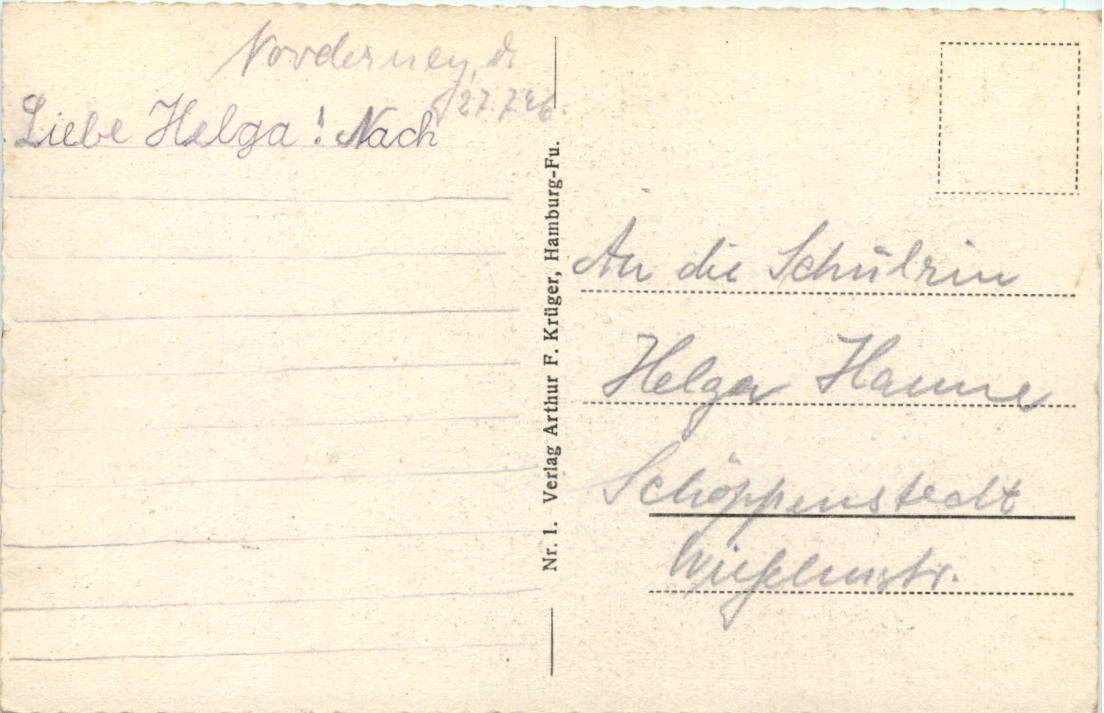 Norderney, d.
27.7.46.
Liebe Helga! Nach
Nr. 1. Verlag Arthur F. Krüger, Hamburg-Fu.
An die Schülrin
Helga Hamne
Schöppenstedt